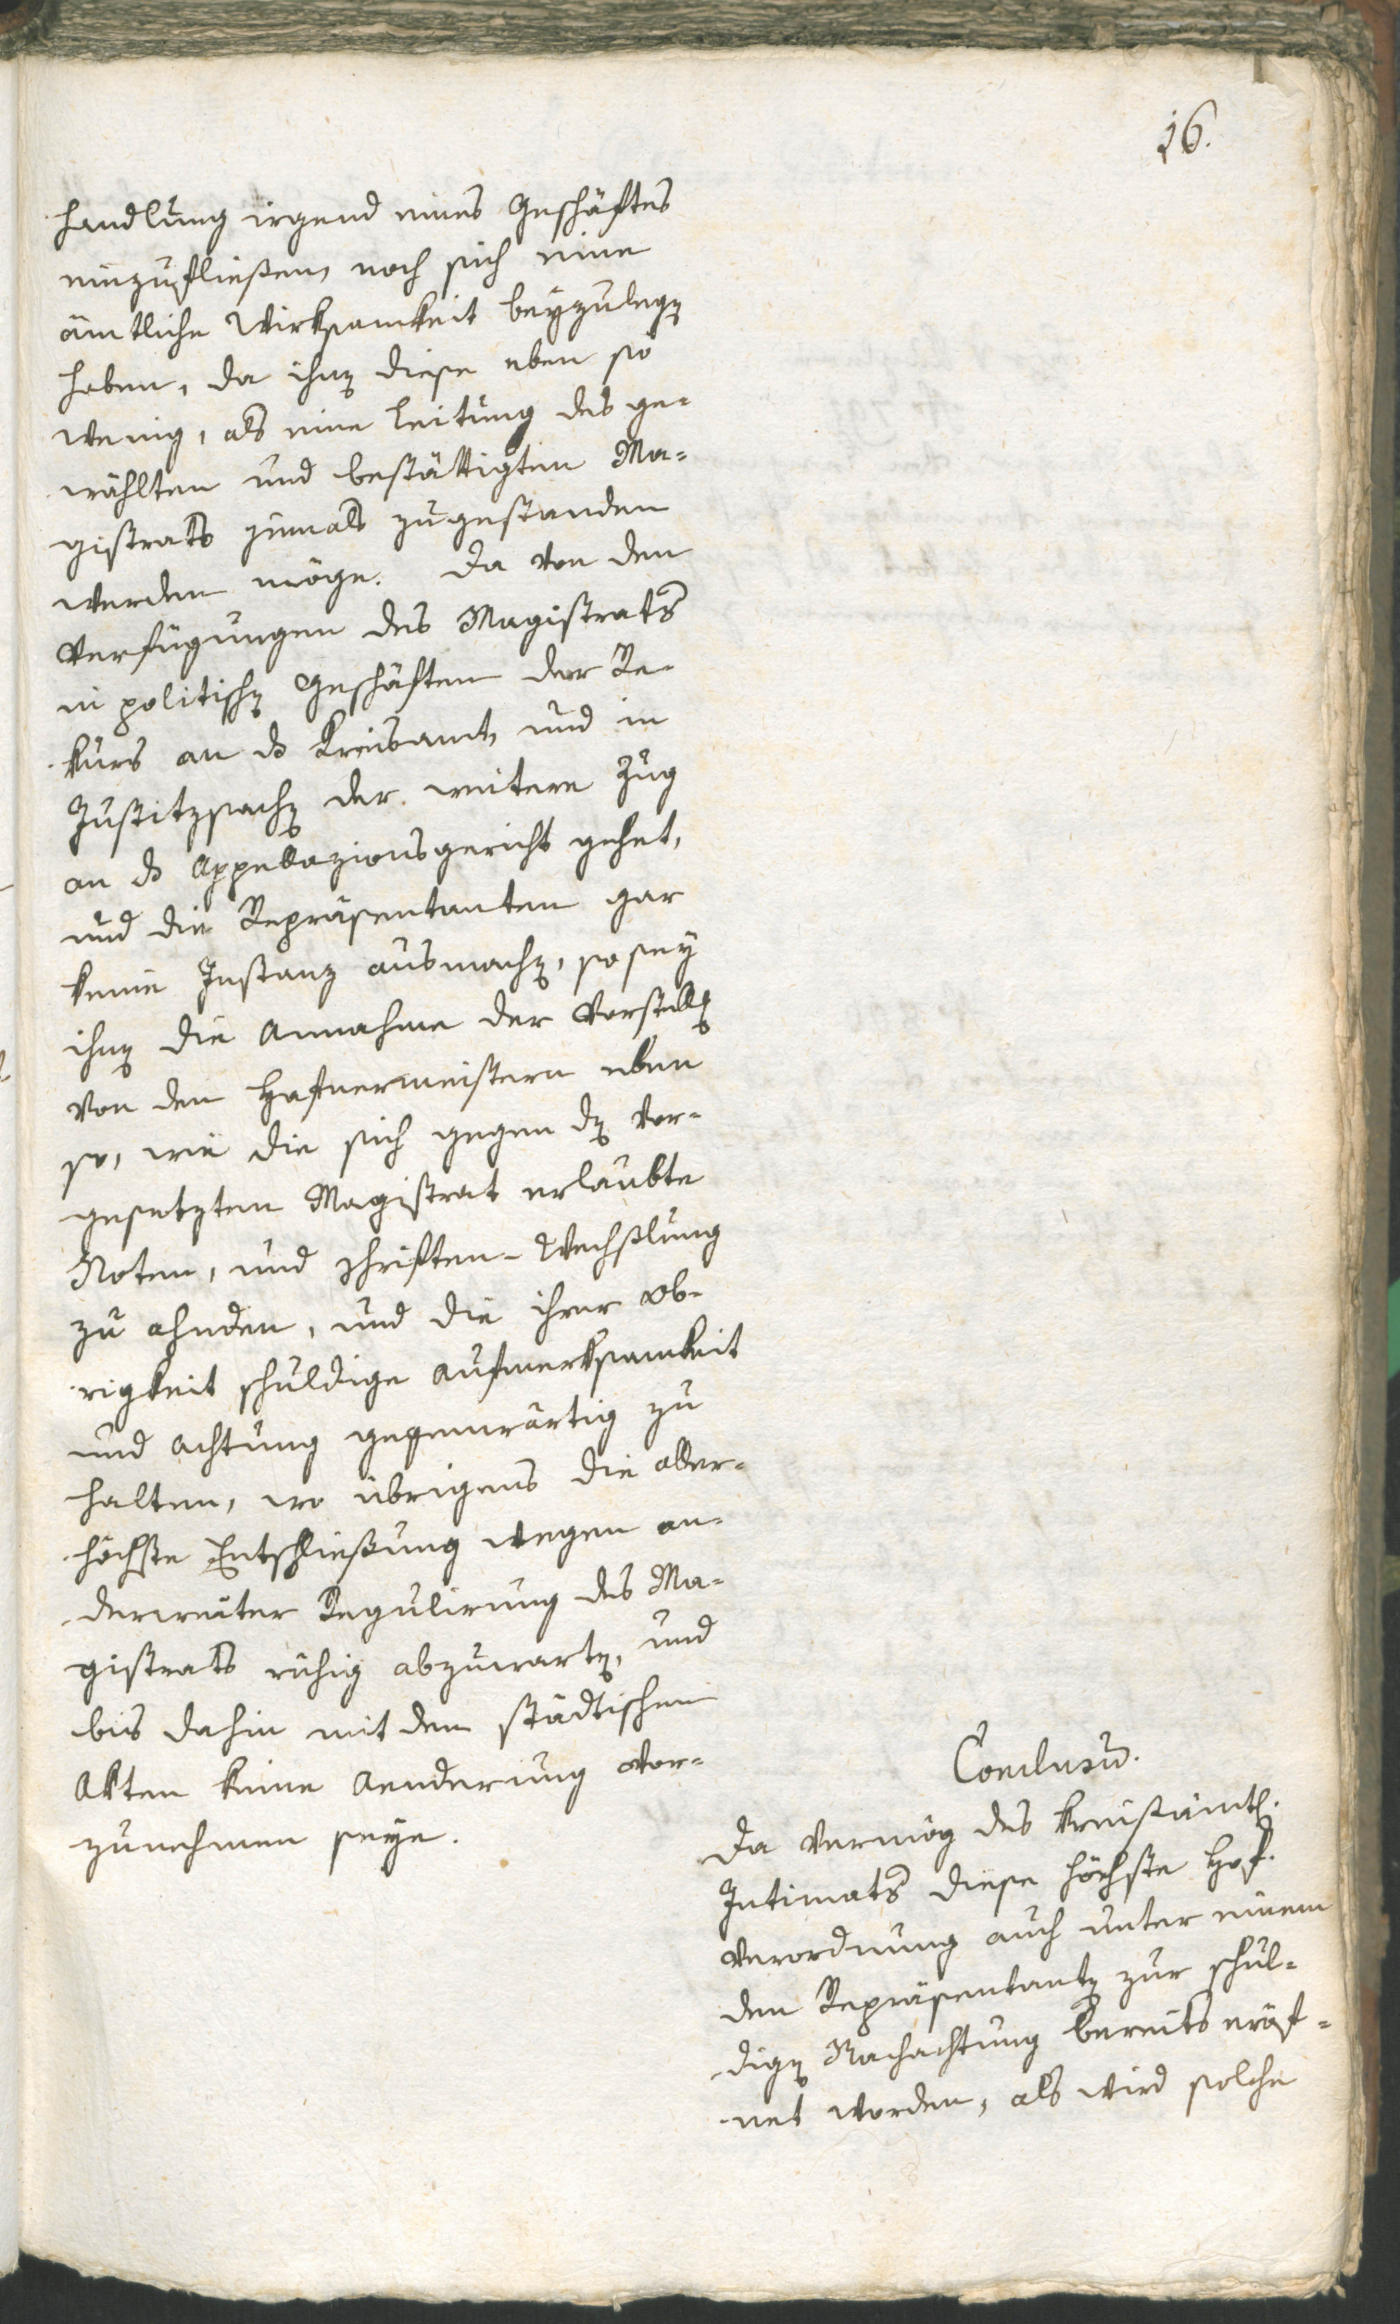 16.
handlung irgend eines Geschäftes
einzufließen, noch sich eine
ämtliche Wirksamkeit beyzulegen
haben, da ihnen diese eben so
wenig, als eine Leitung des ge-
wählten und bestättigten Ma-
gistrats jemals zugestanden
werden möge. Da von den
Verfügungen des Magistrats
in politischen Geschäften der Re-
kurs an das Kreisamt, und in
Justitzsachen der weitere Zug
an das Appellazionsgericht gehet,
und die Repräsentanten gar
keine Instanz ausmachen, so sey
ihnen die Annahme der Vorstellung
von den Hafnermeistern eben
so, wie die sich gegen den vor-
gesetzten Magistrat erlaubte
Noten, und Schriften-Wechslung
zu ahnden, und die ihrer Ob-
rigkeit schuldige Aufmerksamkeit
und Achtung gegenwärtig zu
halten, wo übrigens die aller-
höchste Entschließung wegen an-
derweiter Regulirung des Ma-
gistrats ruhig abzuwarten, und
bis dahin mit den städtischen
Akten keine Aenderung vor-
zunehmen seye.
Conclusum.
Da vermög des kreisämtl.
Intimats diese höchste Hof-
verordnung auch unter einem
den Repräsentanten zur schul-
digen Nachachtung bereits eröf-
net worden, als wird solche